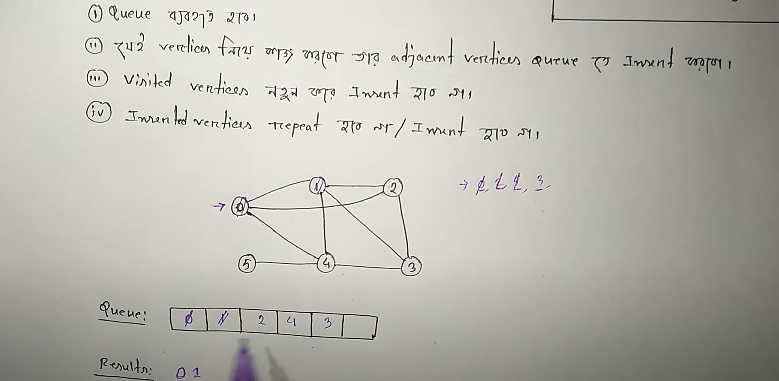 (i) Queue ব্যবহৃত হবে।
(ii) যেই vertices নিয়ে কাজ করবো তার adjacent vertices queue তে Insert করবো।
(iii) Visited vertices নতুন করে Insert হবে না।
(iv) Inserted vertices repeat হবে না / Insert হবে না।
1 2
→ 0
→ 0, 1, 2, 3
5 4 3
Queue: 0 1 2 4 3
Results: 0 1